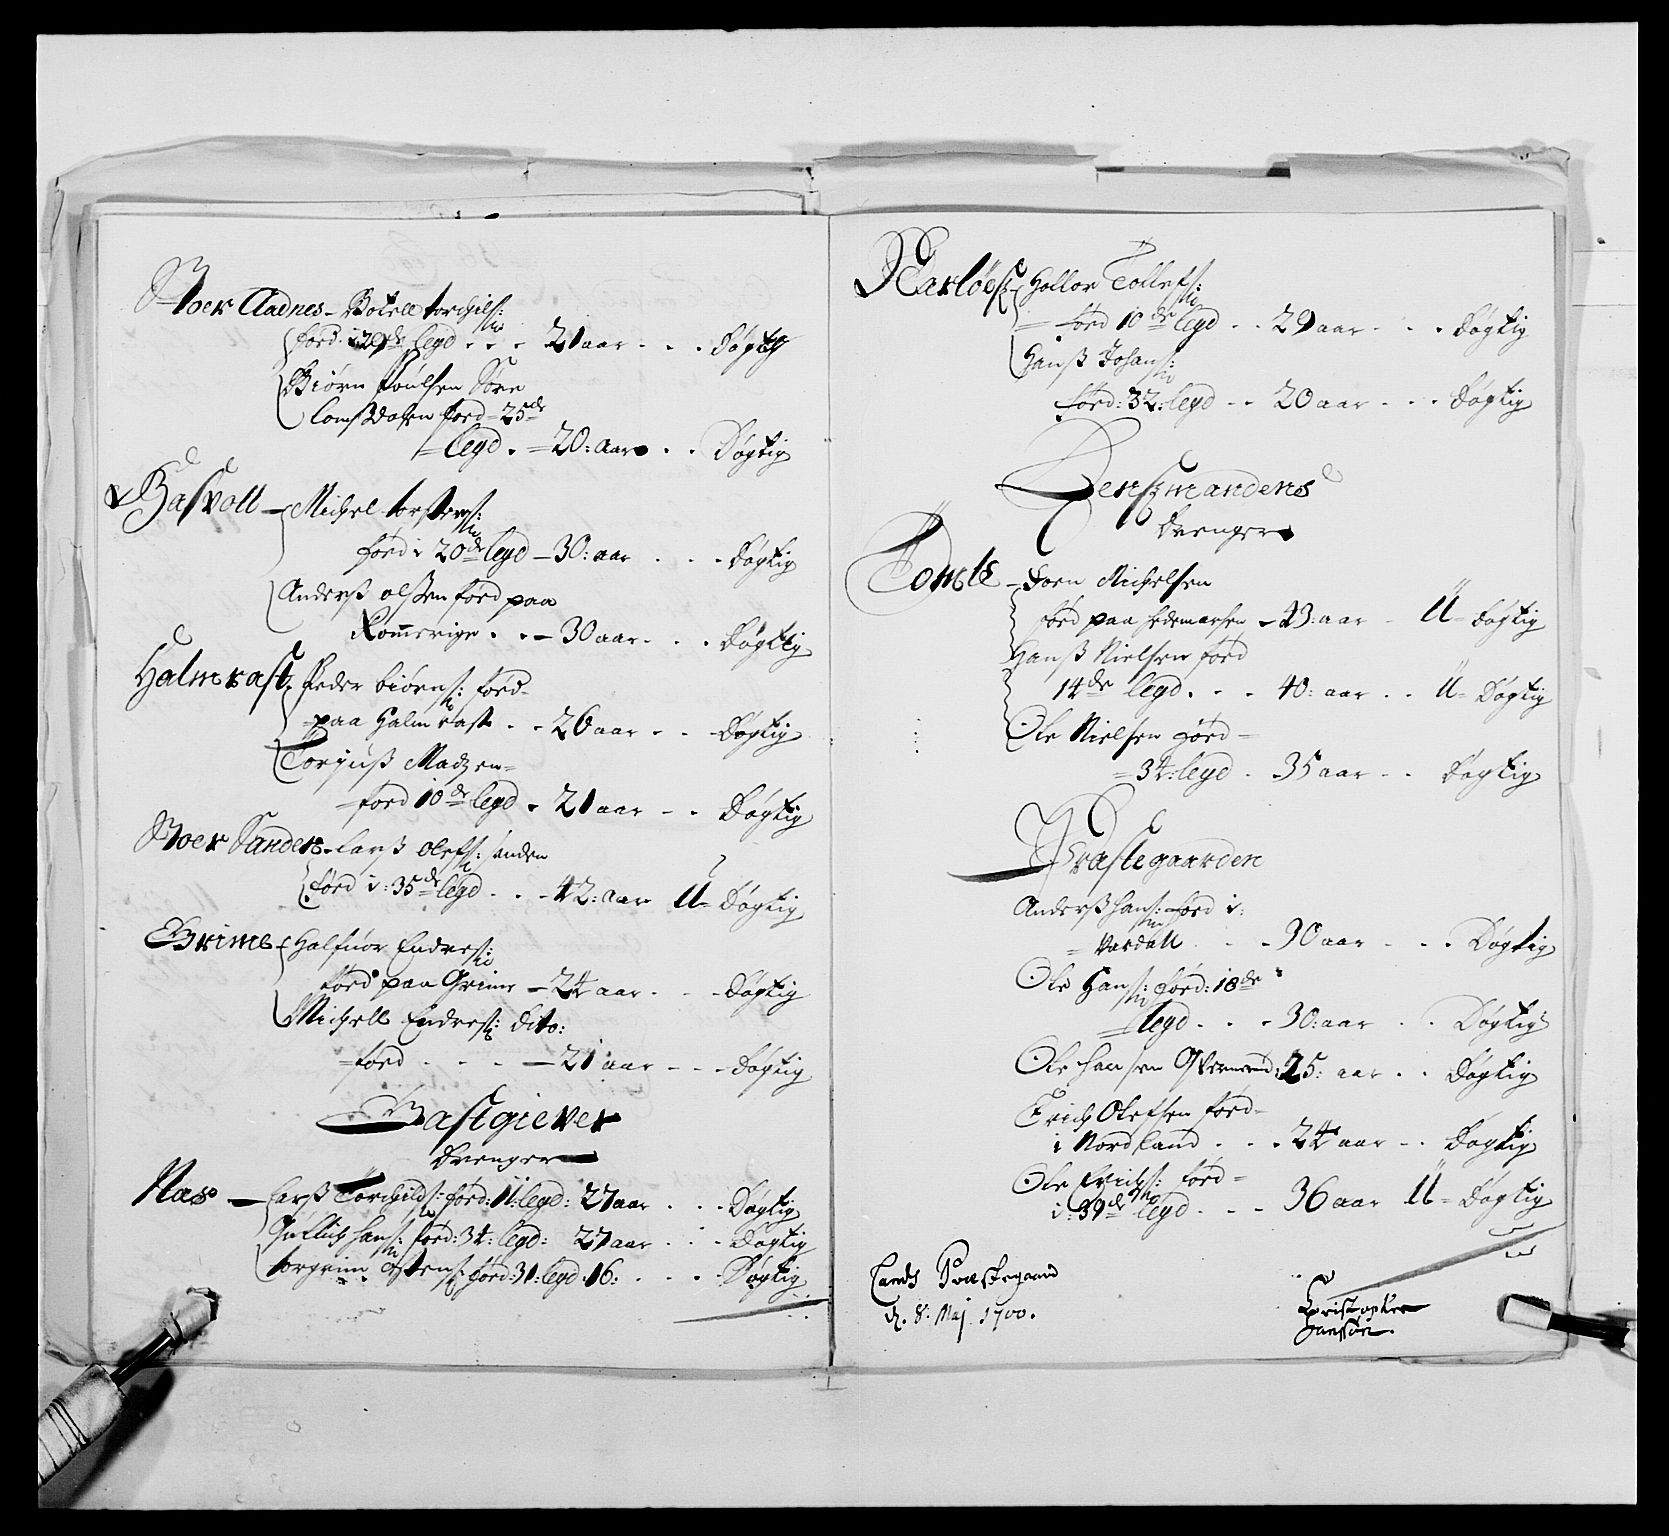 Noer Aadnes - Botell torchils:
förd i 29de legd - - - 21 aar - - - Dögtig
Biörn Poulsen
förd = 25de
= legd . = 20: aar . . Dögtig
Basvoll - Michel torstens:
förd i 20de legd - 30: aar . . . Dögtig
Anderss olssen förd paa
Rommerige . . - 30 aar . . . Dögtig
Halmrast. Peder biörns: förd
paa Halmrast . . - 26 aar . . - Dögtig
Torjuss Madzen =
förd 10de legd . 21 aar - - Dögtig
Noer Sanden - Larss Olefs: inden
förd i: 35de legd . . - 42: aar U = Dögtig
Grime - Halfuor Endres:
förd paa Grime - 24 aar . . - Dögtig
Michell Endres: dito:
= förd . . . - 21 aar - - - Dögtig
Gastgiever
Drenger
Næs - Larss Torchilds: förd: 11: legd: 27 aar . . . Dögtig
hans: förd: 34: legd: 27 aar . . . Dögtig
torgrim förd: 31: legd 16: . . . Dögtig
Karlöess Hallor Tollefs:
= förd 10de legd . . 29 aar . . . Dögtig
Hanss Johans:
förd: 32: legd . . 20 aar . . . Dögtig
Lenssmandens
Drenger
Tomle - Joen Michelsen
förd paa hedemarken - 43: aar - U = Dögtig
Hanss Nielsen förd
14de legd . . . 40: aar . . U = Dögtig
Ole Nielsen förd =
= 34: legd . 35 aar - . Dögtig
Præstegaarden
Anderss hans: förd i:
= Vardall . . . 30 aar . . . Dögtig
Ole Hans: förd: 18de
= legd . . . 30: aar . . Dögtig
Ole hansen 25: aar . . Dögtig
Erich Olefsen förd =
i Nordland . . . 24 aar - . Dögtig
Ole Erichs: förd =
i: 39de legd . . - 36 aar U = Dögtig
Lands Præstegaard
d. 8. Maj 1700.
Christopher
Hanssön.